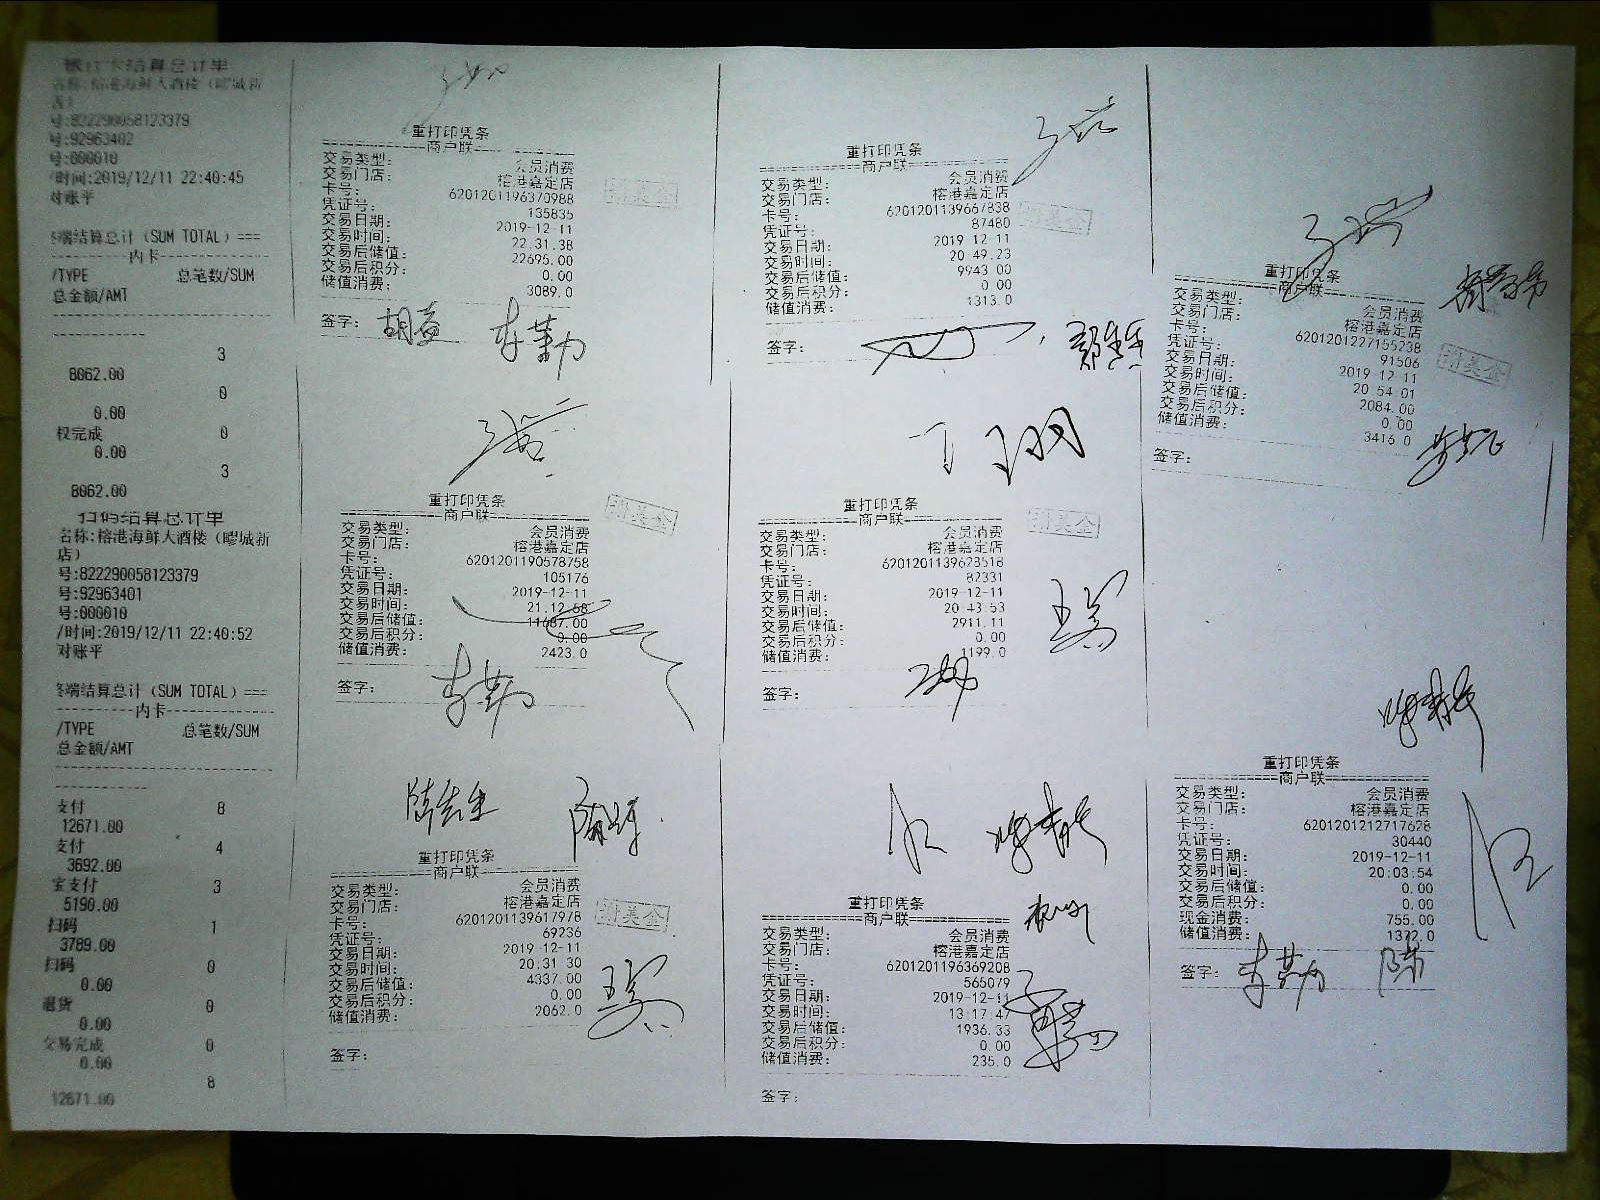 银行卡结算总计单
名称:榕港海鲜大酒楼（疁城新
店）
号:822290058123379
号:92963402
号:000010
/时间:2019/12/11 22:40:45
对账平
终端结算总计（SUM TOTAL）===
----------内卡----------
/TYPE 总笔数/SUM
总金额/AMT
3
8062.00
0
0.00
权完成 0
0.00
3
8062.00
扫码结算总计单
名称:榕港海鲜大酒楼（疁城新
店）
号:822290058123379
号:92963401
号:000010
/时间:2019/12/11 22:40:52
对账平
终端结算总计（SUM TOTAL）===
----------内卡----------
/TYPE 总笔数/SUM
总金额/AMT
支付 8
12671.00
支付 4
3692.00
宝支付 3
5190.00
扫码 1
3789.00
扫码 0
0.00
退货 0
0.00
交易完成 0
0.00
8
12671.00
重打印凭条
商户联
交易类型: 会员消费
交易门店: 榕港嘉定店
卡号: 6201201196370988
凭证号: 135835
交易日期: 2019-12-11
交易时间: 22.31.38
交易后储值: 22695.00
交易后积分: 0.00
储值消费: 3089.0
签字:
李勤
重打印凭条
商户联
交易类型: 会员消费
交易门店: 榕港嘉定店
卡号: 6201201190578758
凭证号: 105176
交易日期: 2019-12-11
交易时间: 21.12.58
交易后储值: 11687.00
交易后积分: 0.00
储值消费: 2423.0
签字: 李勤
陈先生
重打印凭条
商户联
交易类型: 会员消费
交易门店: 榕港嘉定店
卡号: 6201201139617978
凭证号: 69236
交易日期: 2019-12-11
交易时间: 20:31 30
交易后储值: 4337.00
交易后积分: 0.00
储值消费: 2062.0
签字:
重打印凭条
商户联
交易类型: 会员消费
交易门店: 榕港嘉定店
卡号: 6201201139667838
凭证号: 87480
交易日期: 2019 12-11
交易时间: 20 49.23
交易后储值: 9943 00
交易后积分: 0 00
储值消费: 1313.0
签字:
重打印凭条
商户联
交易类型: 会员消费
交易门店: 榕港嘉定店
卡号: 6201201139623518
凭证号: 82331
交易日期: 2019-12-11
交易时间: 20 43:53
交易后储值: 2911.11
交易后积分: 0.00
储值消费: 1199.0
签字:
重打印凭条
商户联
交易类型: 会员消费
交易门店: 榕港嘉定店
卡号: 6201201196369208
凭证号: 565079
交易日期: 2019-12-11
交易时间: 13:17:47
交易后储值: 1936.33
交易后积分: 0.00
储值消费: 235.0
签字:
重打印凭条
商户联
交易类型: 会员消费
交易门店: 榕港嘉定店
卡号: 6201201227155238
凭证号: 91506
交易日期: 2019 12-11
交易时间: 20 54 01
交易后储值: 2084.00
交易后积分: 0.00
储值消费: 3416 0
签字:
重打印凭条
商户联
交易类型: 会员消费
交易门店: 榕港嘉定店
卡号: 6201201212717628
凭证号: 30440
交易日期: 2019-12-11
交易时间: 20:03:54
交易后储值: 0.00
交易后积分: 0.00
现金消费: 755.00
储值消费: 1372.0
签字: 李勤 陈